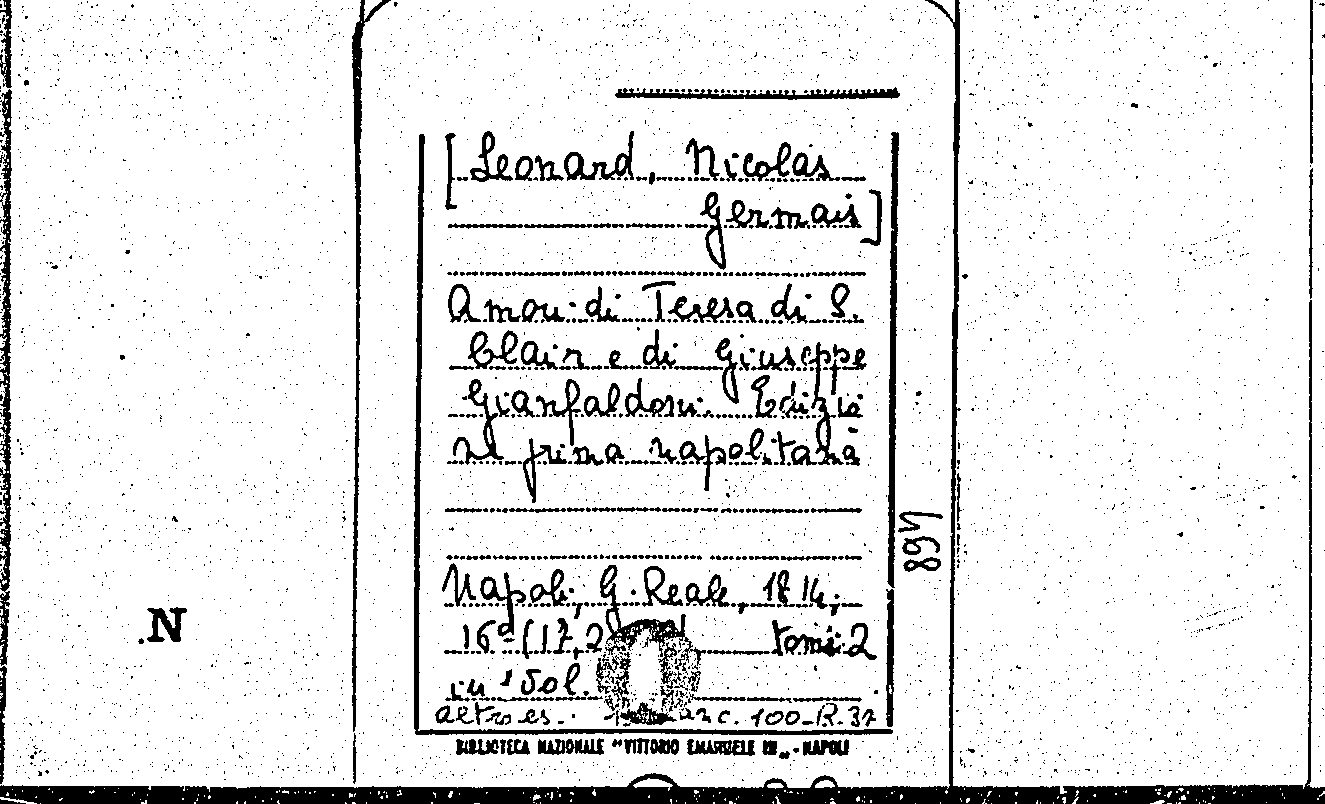 [Leonard, Nicolas
Germais]
Amori di Teresa di S.
Clair e di Giuseppe
Gianfaldoni. Edizio
ne prima napolitana
Napoli, G. Reale, 1814;
16º (17,2 tomi 2
in 1 vol.
altro es. 100-R.37
BIBLIOTECA NAZIONALE "VITTORIO EMANUELE III" - NAPOLI
894
.N